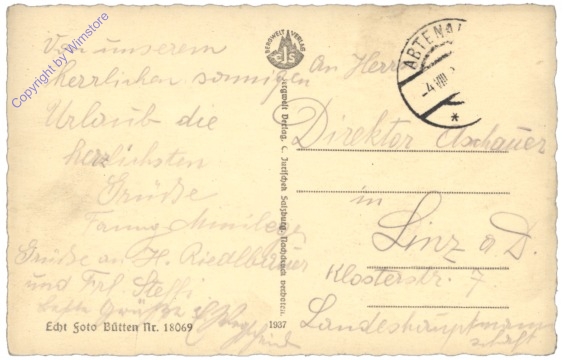 Von unserem
herrlichen sonnigen
Urlaub die
herzlichsten
Grüße
Grüße an H. Riedlbauer
und Frl. Steffi
beste Grüße
Echt Foto Bütten Nr. 18069
BERGWELT VERLAG
CJS
Bergwelt Verlag, C. Jurischek Salzburg. Nachdruck verboten.
1937
ABTENA
-4.VIII
*
An Herrn
Direktor Aschauer
in
Linz a D.
Klosterstr. 7
Landeshauptmann
schaft
Copyright by Wimstore